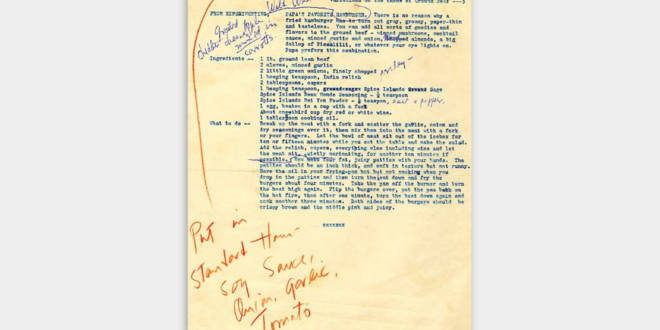 FROM EXPERIMENTING, PAPA'S FAVORITE HAMBURGER. There is no reason why a
fried hamburger has to turn out gray, greasy, paper-thin
and tasteless. You can add all sorts of goodies and
flavors to the ground beef - minced mushrooms, cocktail
sauce, minced garlic and onion, chopped almonds, a big
dollop of Piccadilli, or whatever your eye lights on.
Papa prefers this combination.
Grated apple
carrots
Ingredients -- 1 lb. ground lean beef
2 cloves, minced garlic
2 little green onions, finely chopped parsley-
1 heaping teaspoon, India relish
2 tablespoons, capers
1 heaping teaspoon, Spice Islands Sage
Spice Islands Beau Monde Seasoning - ½ teaspoon
Spice Islands Mei Yen Powder - ½ teaspoon, Salt & pepper.
1 egg, beaten in a cup with a fork
About one-third cup dry red or white wine.
1 tablespoon cooking oil.
What to do -- Break up the meat with a fork and scatter the garlic, onion and
dry seasonings over it, then mix them into the meat with a fork
or your fingers. Let the bowl of meat sit out of the icebox for
ten or fifteen minutes while you set the table and make the salad.
Add the relish, capers, everything else including wine and let
the meat sit, quietly marinating, for another ten minutes if
possible. Now make four fat, juicy patties with your hands. The
patties should be an inch thick, and soft in texture but not runny.
Have the oil in your frying-pan hot but not smoking when you
drop in the patties and then turn the heat down and fry the
burgers about four minutes. Take the pan off the burner and turn
the heat high again. Flip the burgers over, put the pan back on
the hot fire, then after one minute, turn the heat down again and
cook another three minutes. Both sides of the burgers should be
crispy brown and the middle pink and juicy.
Put in
Standard Ham-
Soy Sauce,
Onion, Garlic,
Tomato